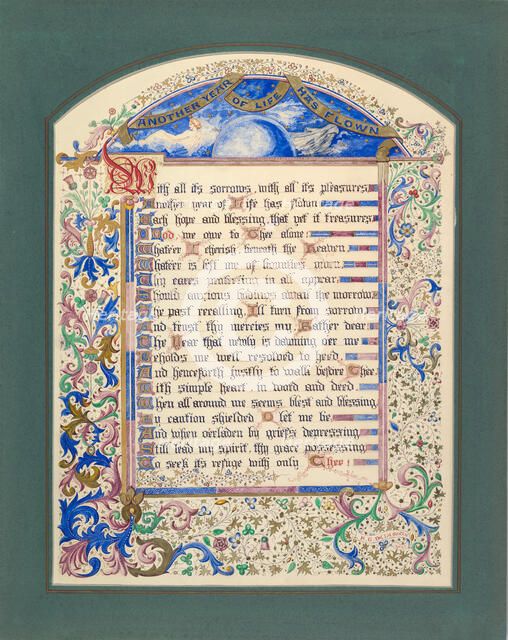 ANOTHER YEAR OF LIFE HAS FLOWN
With all it's sorrows, with all it's pleasures
Another year of Life has flown
Each hope and blessing, that yet it treasures
God, we owe to Thee alone!
Whate'er I cherish beneath the Heaven
Whate'er is left me of
Thy cares protecting in all appear,
Should anxious await the morrow
The past recalling, I'll turn from sorrow
And trust thy mercies my Father dear.
The Year that newly is dawning o'er me
Beholds me well resolved to heed,
And henceforth firstly to walk before Thee
With simple heart, in word and deed.
When all around me seems blest and blessing
By caution shielded O let me be,
And when o'erladen by griefs depressing
Still lead my spirit, thy grace possessing
To seek it's refuge with only Thee!